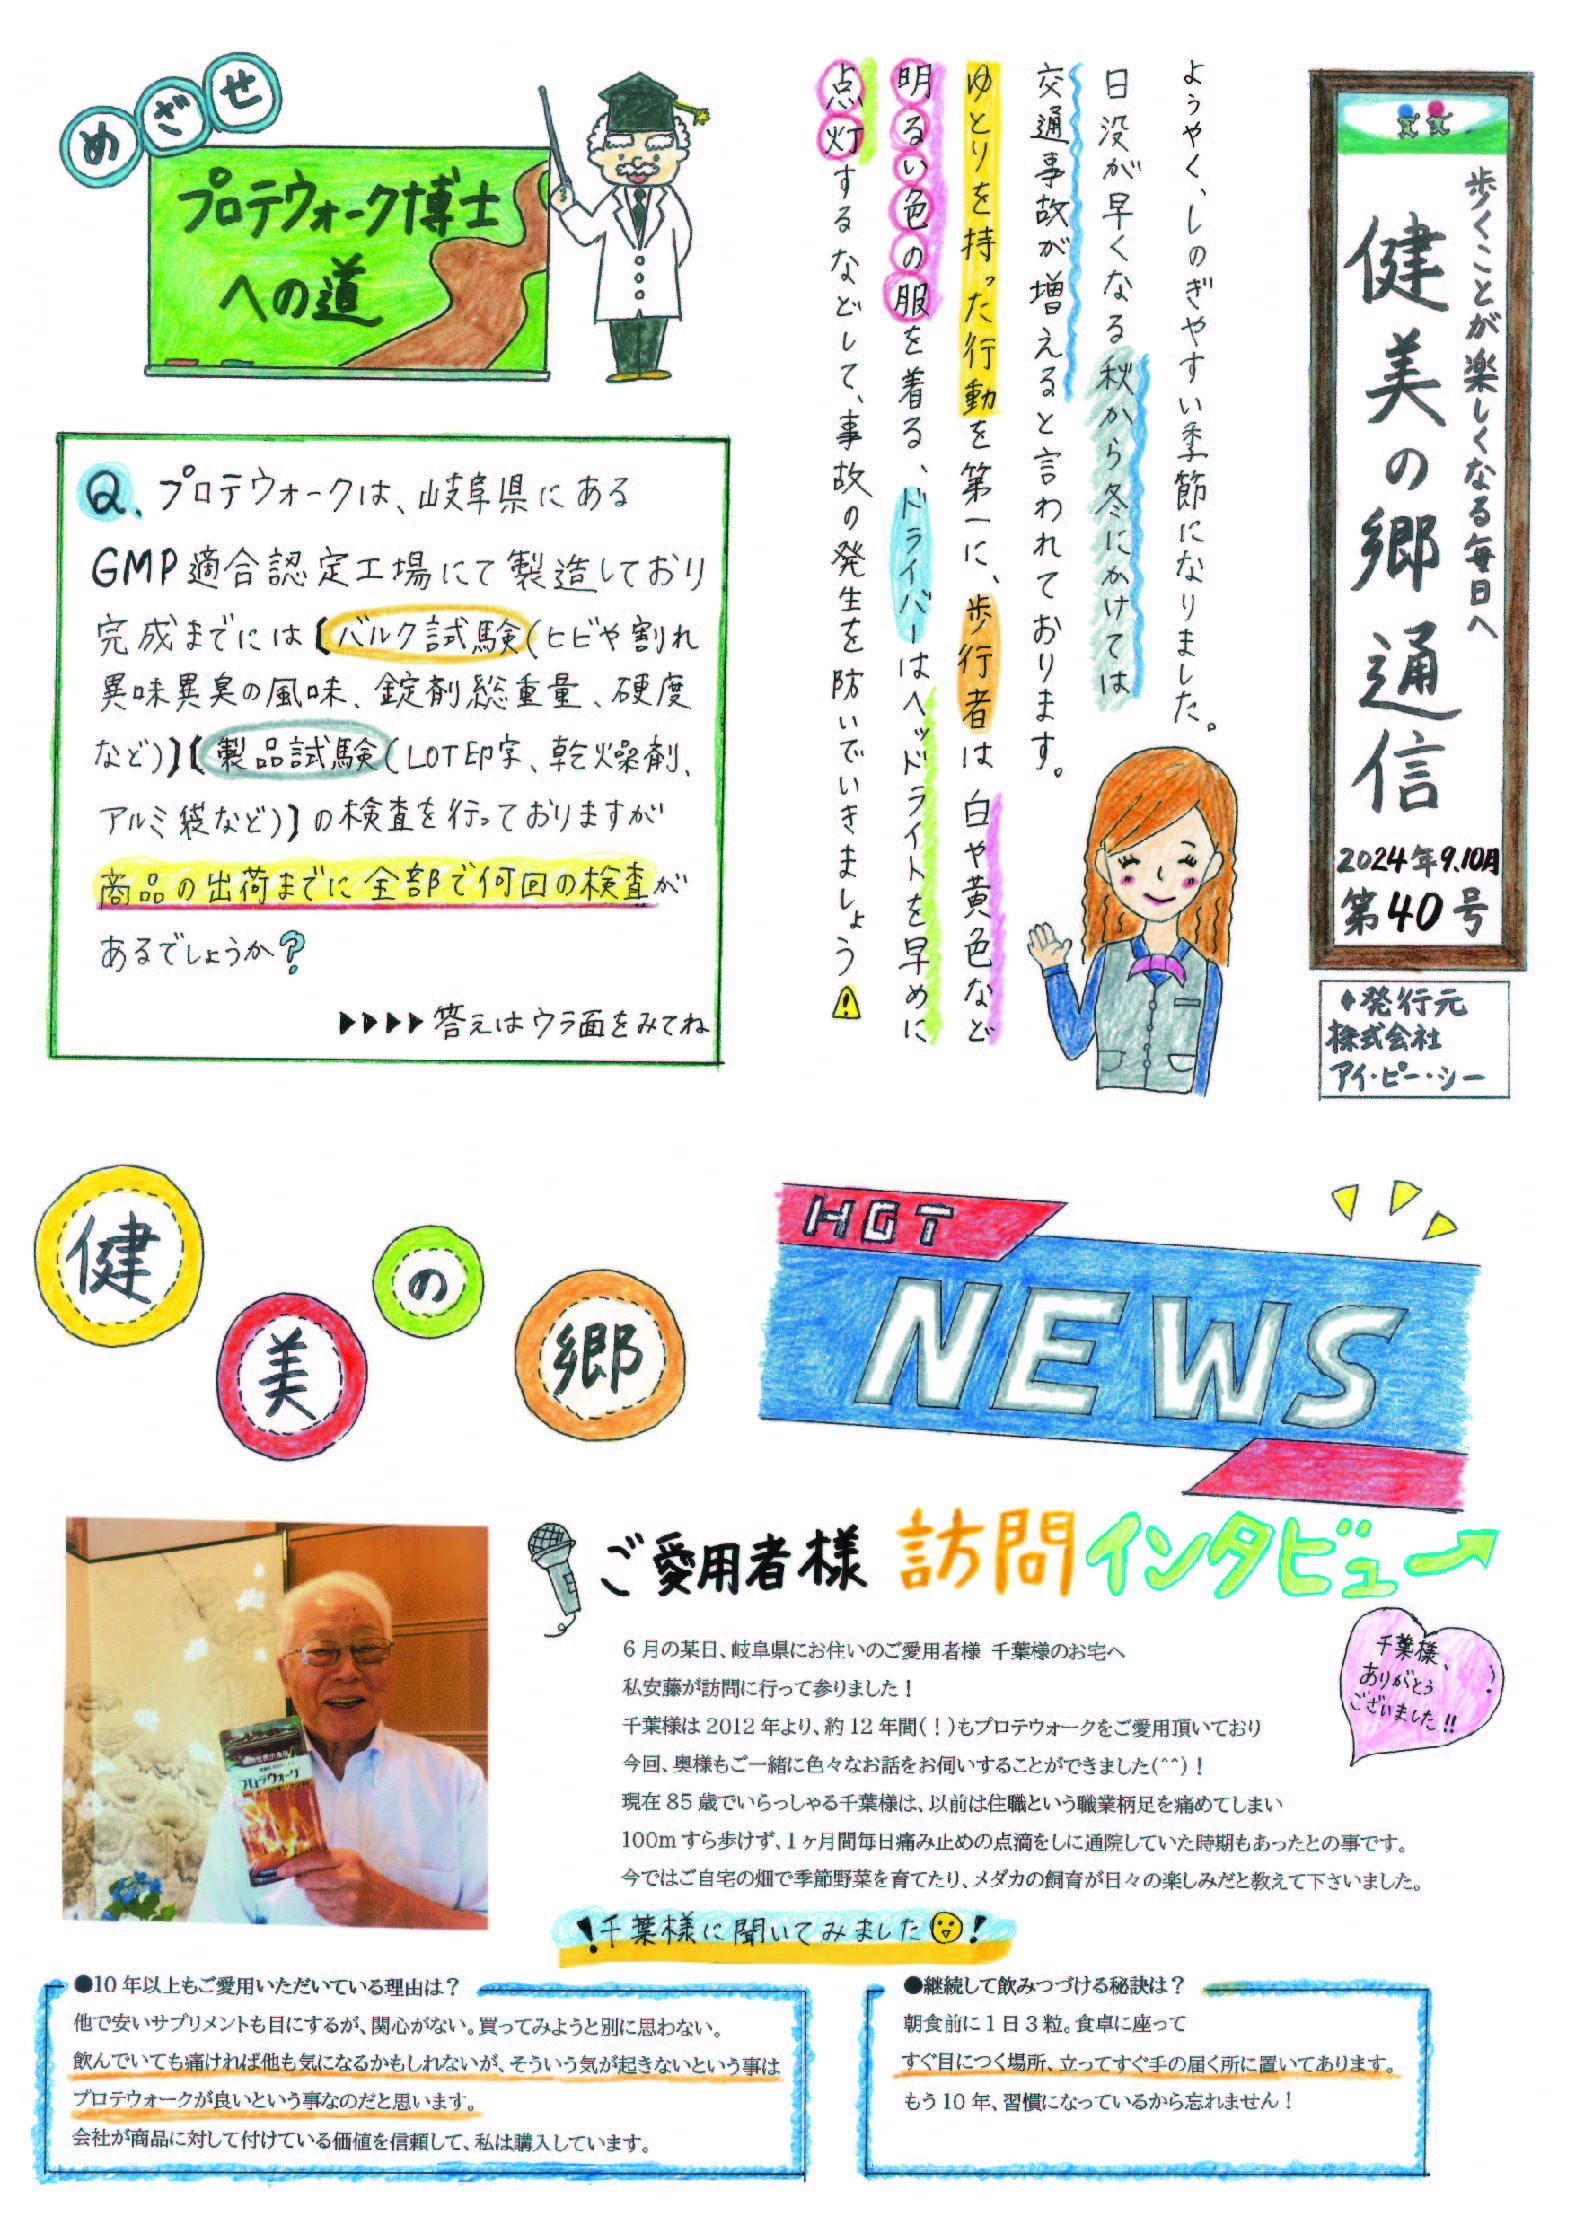 歩くことが楽しくなる毎日へ
健美の郷通信
2024年9.10月
第40号
♦発行元
株式会社
アイ・ピー・シー
ようやく、しのぎやすい季節になりました。
日没が早くなる秋から冬にかけては
交通事故が増えると言われております。
ゆとりを持った行動を第一に、歩行者は白や黄色など
明るい色の服を着る、ドライバーはヘッドライトを早めに
点灯するなどして、事故の発生を防いでいきましょう
めざせ
プロテウォーク博士
への道
Q、プロテウォークは、岐阜県にある
GMP適合認定工場にて製造しており
完成までには【バルク試験(ヒビや割れ
異味異臭の風味、錠剤総重量、硬度
など)】【製品試験(LOT印字、乾燥剤、
アルミ袋など)】の検査を行っておりますが
商品の出荷までに全部で何回の検査が
あるでしょうか?
▶▶▶▶答えはウラ面をみてね
健美の郷
HOT
NEWS
ご愛用者様 訪問インタビュー
6月の某日、岐阜県にお住いのご愛用者様 千葉様のお宅へ
私安藤が訪問に行って参りました!
千葉様は2012年より、約12年間(!)もプロテウォークをご愛用頂いており
今回、奥様もご一緒に色々なお話をお伺いすることができました(^^)!
現在85歳でいらっしゃる千葉様は、以前は住職という職業柄足を痛めてしまい
100mすら歩けず、1ヶ月間毎日痛み止めの点滴をしに通院していた時期もあったとの事です。
今ではご自宅の畑で季節野菜を育てたり、メダカの飼育が日々の楽しみだと教えて下さいました。
千葉様、
ありがとう
ございました!!
プロテウォーク
!千葉様に聞いてみました!
●10年以上もご愛用いただいている理由は?
他で安いサプリメントも目にするが、関心がない。買ってみようと別に思わない。
飲んでいても痛ければ他も気になるかもしれないが、そういう気が起きないという事は
プロテウォークが良いという事なのだと思います。
会社が商品に対して付けている価値を信頼して、私は購入しています。
●継続して飲みつづける秘訣は?
朝食前に1日3粒。食卓に座って
すぐ目につく場所、立ってすぐ手の届く所に置いてあります。
もう10年、習慣になっているから忘れません!